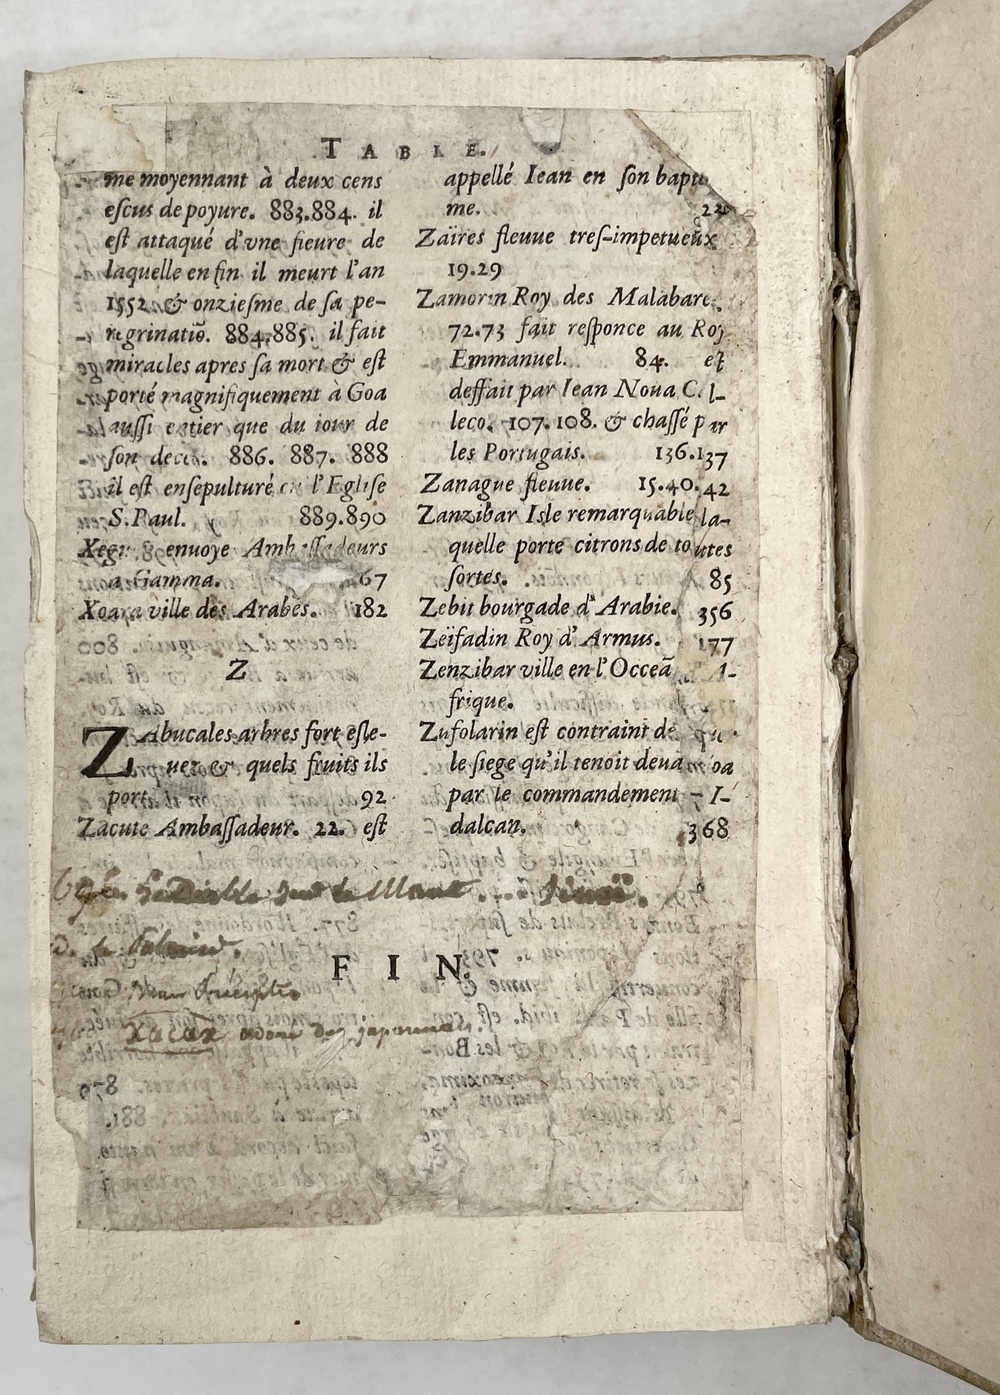 TABLE.
me moyennant à deux cens
eſcus de poyure. 883.884. il
eſt attaqué d'vne fieure de
laquelle en fin il meurt l'an
1552. & onzieſme de ſa pe-
regrinatiõ. 884.885. il fait
miracles apres ſa mort & eſt
porté magnifiquement à Goa
auſſi entier que du iour de
ſon decés. 886. 887. 888
il eſt enſepulturé en l'Egliſe
S. Paul. 889.890
enuoye Ambaſſadeurs
a Gamma. 67
Xoara ville des Arabes. 182
Z
ZAbucales arbres fort eſle-
uez & quels fruits ils
port 92
Zacute Ambaſſadeur. 22. eſt
appellé Iean en ſon bapte
me. 22
Zaïres fleuue treſ-impetueux
19.29
Zamorin Roy des Malabares
72.73 fait reſponce au Roy
Emmanuel. 84. eſt
deffait par Iean Noua C l-
leco. 107.108. & chaſſé par
les Portugais. 136.137
Zanague fleuue. 15.40.42
Zanzibar Isle remarquable la-
quelle porte citrons de toutes
ſortes. 85
Zebit bourgade d'Arabie. 356
Zeïfadin Roy d'Armus. 177
Zenzibar ville en l'Occeã d'A-
frique.
Zufolarin eſt contraint de
le ſiege qu'il tenoit deuant Goa
par le commandement d'I-
dalcan. 368
FIN.
Xacax des Iaponnais.